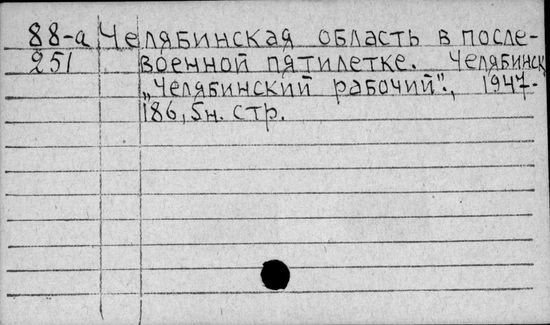 88-а Челябинская область в после-
251 военной пятилетке. Челябинск
„Челябинский рабочий"., 1947.-
186, 5н. стр.